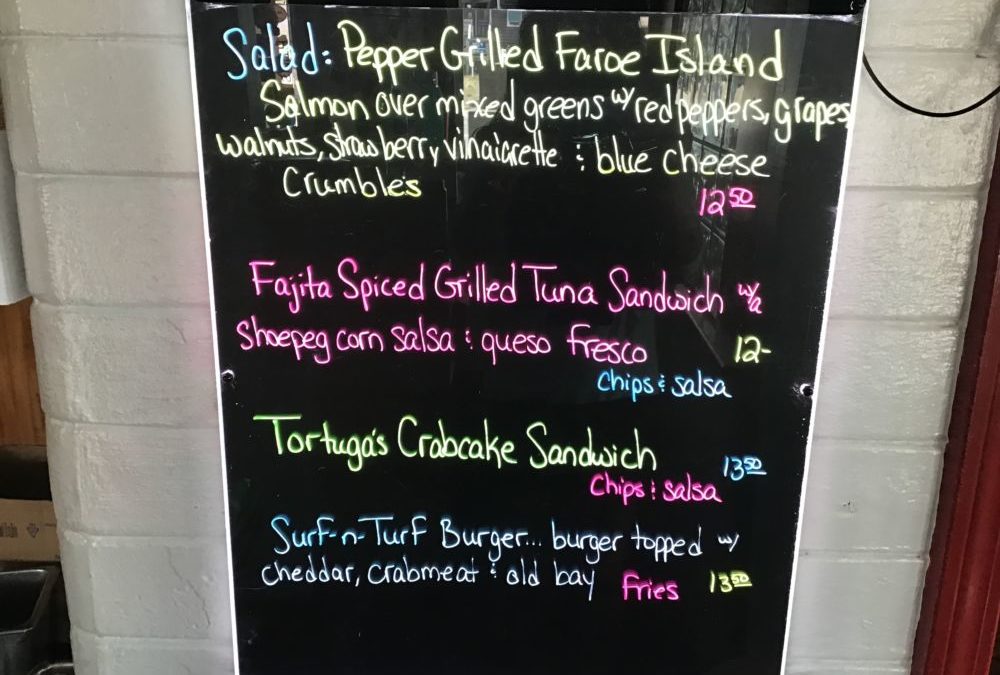 Salad: Pepper Grilled Faroe Island
Salmon over mixed greens w/ red peppers, grapes,
walnuts, strawberry vinaicrette & blue cheese
Crumbles
12 50
Fajita Spiced Grilled Tuna Sandwich w/a
Shoepeg corn salsa & queso fresco 12-
Chips & salsa
Tortuga's Crabcake Sandwich 13 50
Chips & salsa
Surf-n-Turf Burger... burger topped w/
cheddar, crabmeat & old bay Fries 13 50